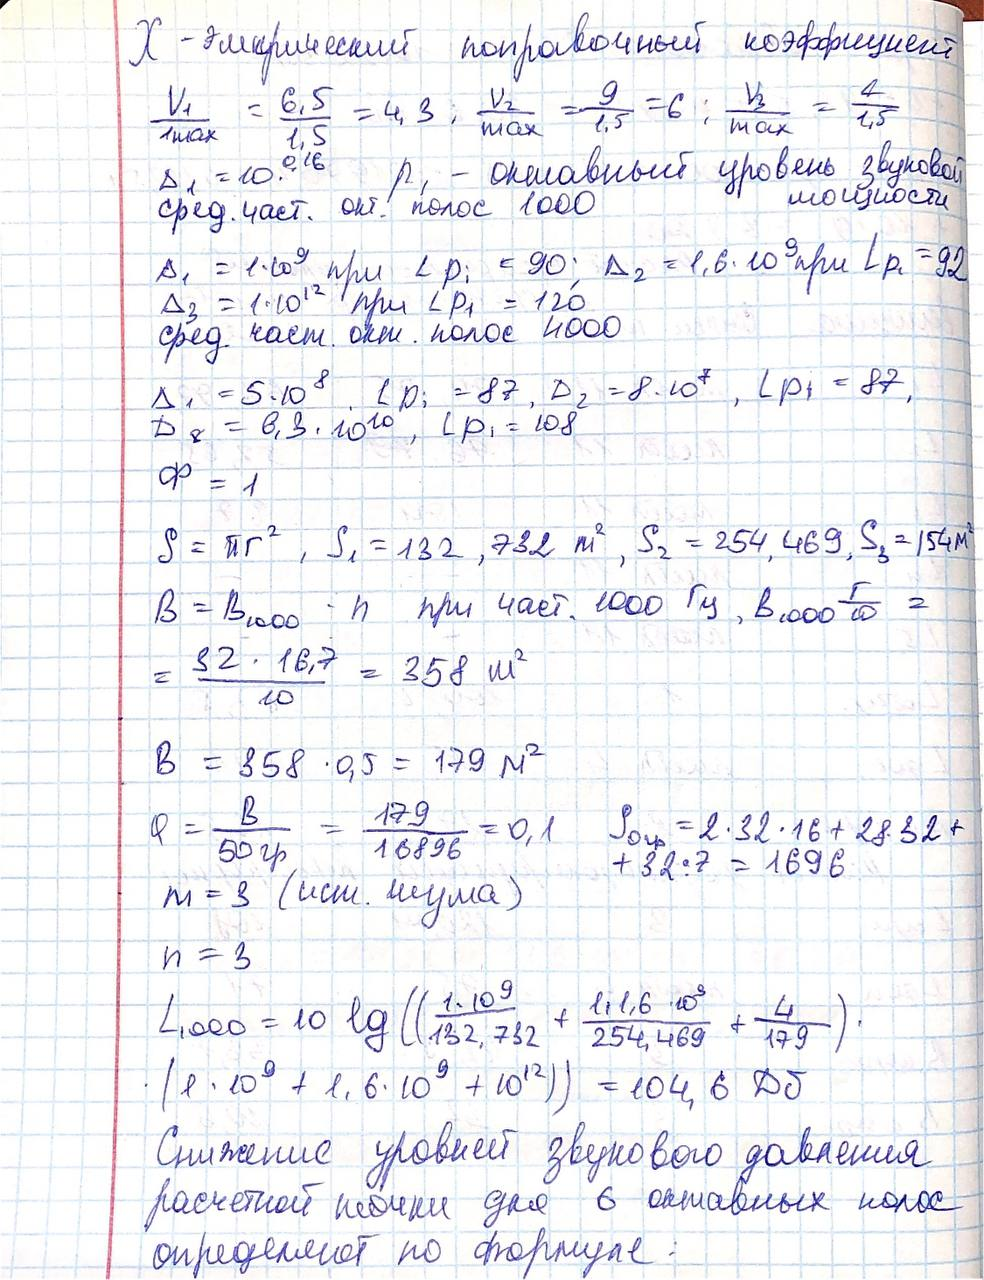 X - эмпирический поправочный коэффициент
V₁/1max = 6,5/1,5 = 4,3 ; V₂/max = 9/1,5 = 6 ; V₃/max = 7/1,5
Δ₁ = 10^0,16 p₁ - октавный уровень звуковой
сред. част. окт. полос 1000 мощности
Δ₁ = 1·10⁹ при Lpᵢ = 90; Δ₂ = 1,6·10⁹ при Lpᵢ = 92
Δ₃ = 1·10¹² при Lp₁ = 120
сред. част. окт. полос 4000
Δ₁ = 5·10⁸, Lpᵢ = 87, D₂ = 8·10⁷, Lpᵢ = 87,
D₂ = 6,3·10¹⁰, Lp₁ = 108
Ф = 1
S = πr², S₁ = 132,732 m², S₂ = 254,469, S₃ = 154 м²
B = B₁₀₀₀ · n при част. 1000 Гц, B₁₀₀₀ Г/10 =
= 32·16,7/10 = 358 м²
B = 358 · 0,5 = 179 м²
φ = B/50гр = 179/16896 = 0,1 Sогр = 2·32·16 + 28·32 +
+ 32:7 = 1696
m = 3 (ист. шума)
n = 3
L₁₀₀₀ = 10 lg ((1·10⁹/132,732 + 1,1,6·10⁹/254,469 + 4/179) ·
· (1·10⁹ + 1,6·10⁹ + 10¹²)) = 104,6 Дб
Снижение уровней звукового давления
расчетной точки для 6 октавных полос
определяют по формуле: